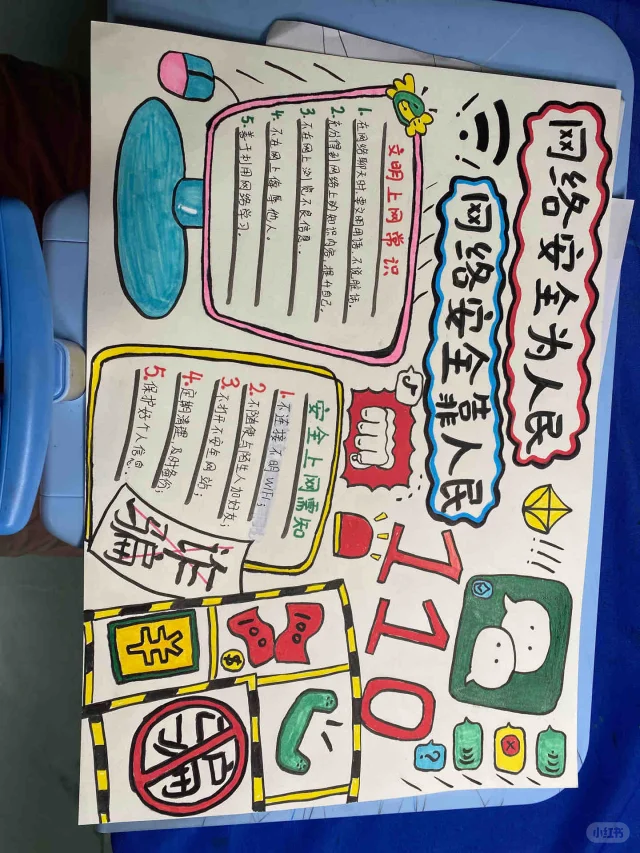 网络安全为人民
网络安全靠人民
文明上网常识
1.在网络聊天时,要文明用语,不说脏话。
2.充分得利网络上的知识内容,提升自己。
3.不在网上浏览不良信息。
4.不在网上侮辱他人。
5.善于利用网络学习。
安全上网需知
1.不连接不明WiFi;
2.不随便与陌生人加好友;
3.不打开不安全网站;
4.定期清理,及时备份;
5.保护好个人信息。
诈骗
110
100
100
¥
$
骗
?
小红书